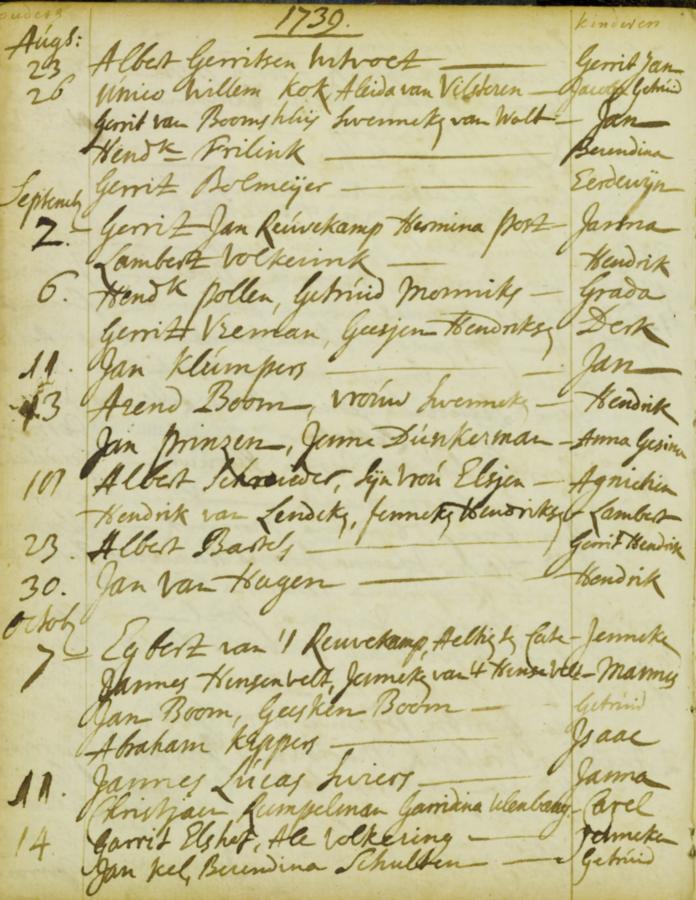 ouders 1739. kinderen
Augs:
23 Albert Gerritsen Uitvoet — Gerrit Jan
26 Unico Willem Kok, Aleida van Vilsteren — Jacoba Getruid
Gerrit van Boomshuis Swenneke van Wolt — Jan
Hendk Frilink — Berendina
Gerrit Bolmeijer — Eerdewijn
Septemb
2. Gerrit Jan Reuvekamp Hermina Post — Janna
Lambert Volkerink — Hendrik
6. Hendk Pollen, Getruid Monniks — Grada
Gerrit Vreman, Geesjen Hendriks, Derk
11. Jan Klumpers — Jan
13 Arend Boom, vrouw Swenneke — Hendrik
Jan Prinzen, Jenne Dunkerman — Anna Gesina
Albert Schreuder, sijn vrou Elsjen — Agnichin
Hendrik van Lendeke, Jenneke Hendriks Lambert
23. Albert Bartels — Gerrit Hendrik
30. Jan van Hagen — Hendrik
Octob
7 Egbert van 't Reuvekamp, Aeltjen — Jenneke
Jannes Hensenvelt, Jenneke van 't Hensevelt — Mannes
Jan Boom, Geesken Boom — Getruid
Abraham Keppers — Isaac
11. Jannes Lucas Swiers — Janna
Christjaen Rumpelman Garridina — Carel
14 Garrit Elshof, Ale Volkering — Jenneken
Jan Kel, Berendina Schulten — Getruid